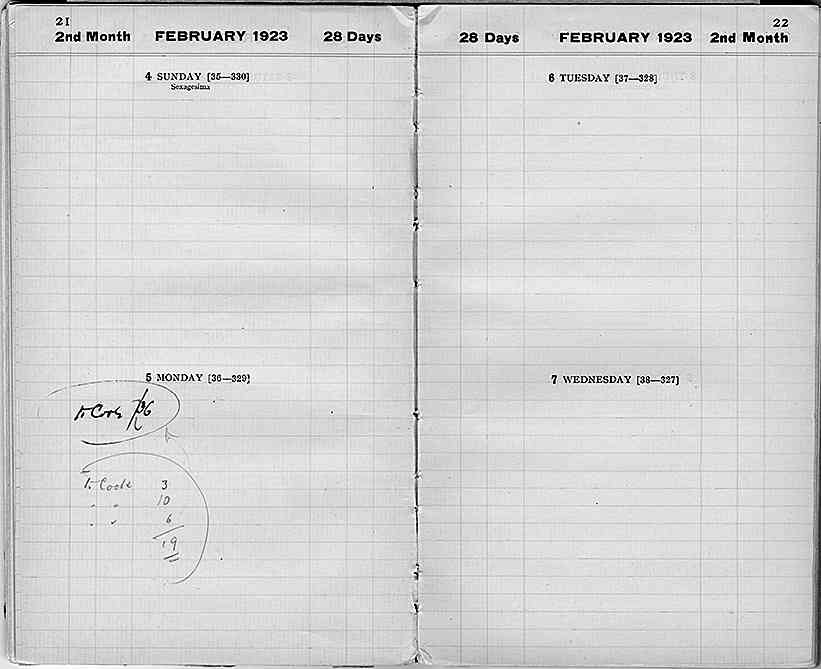 21
2nd Month FEBRUARY 1923 28 Days
4 SUNDAY [35—330]
Sexagesima
5 MONDAY [36—329]
to Cook
to Cook 3
" " 10
" " 6
19
22
28 Days FEBRUARY 1923 2nd Month
6 TUESDAY [37—328]
7 WEDNESDAY [38—327]